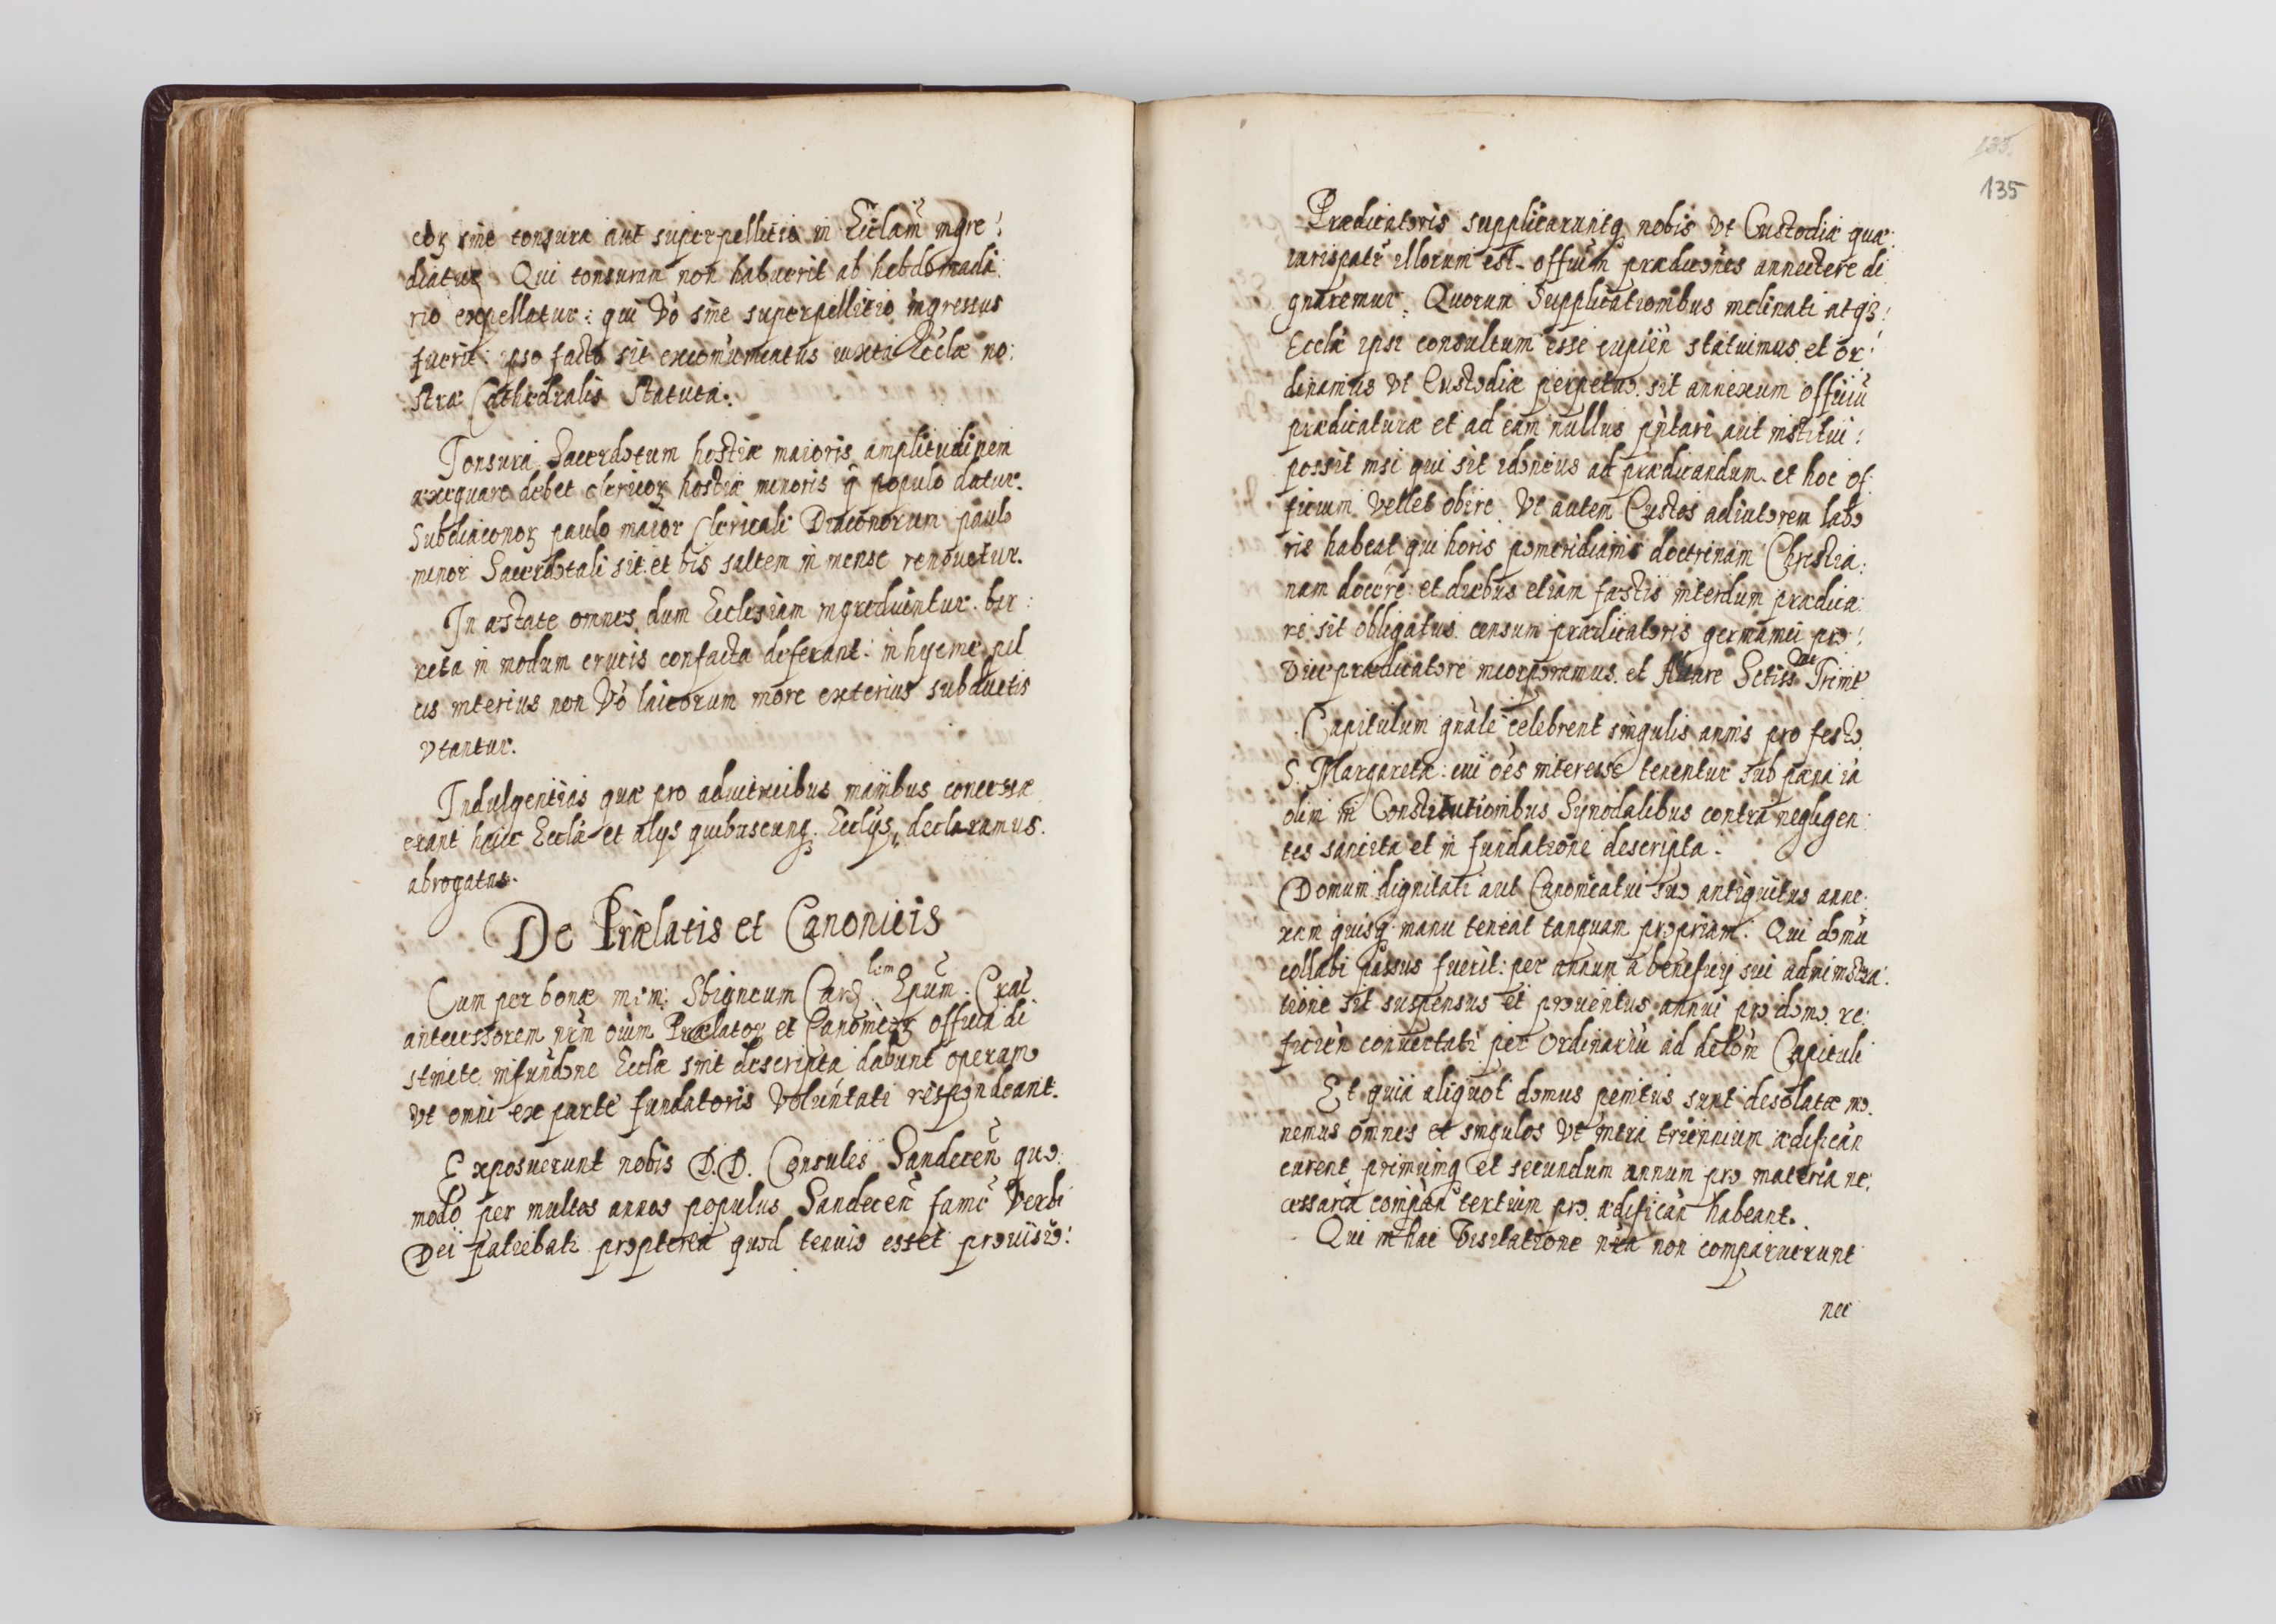 coꝝ sine tonsura aut superpellitio in Eccłam ingre:
diatur. Qui tonsuram non habuerit ab hebdomada:
rio expellatur: qui Vo sine superpellitio ingressus
fuerit: ipso facto sit excommunicatus iuxta Ecclæ no:
stræ Cathedralis Statuta.
Tonsura Sacerdotum hostiæ maioris amplitudinem
exæquare debet clericoꝝ hostiæ minoris q̃ populo datur.
Subdiaconoꝝ paulo maior Clericali Diaconorum paulo
minor Sacerdotali sit et bis saltem in mense renouetur.
In æstate omnes dum Ecclesiam ingrediuntur. bir:
reta in modum crucis confacta deferant: in hyeme pil
eis interius non Vo laicorum more exterius subductis
vtantur.
Indulgentias quæ pro adiutricibus manibus concessæ
erant huic Ecclæ et alijs quibuscunq. Ecclijs, declaramus.
abrogatas.
De Prælatis et Canonicis
Cum per bonæ mem: Sbigneum Card: lem Epum. Crac
antecessorem nrm oium Prælatoꝝ et Canonicoꝝ officia di
stincte in fundone Ecclæ sint descripta dabunt operam
vt omni ex parte fundatoris Voluntati respondeant.
Exposuerunt nobis D.D. Consules Sandecen quo:
modo per multos annos populus Sandecen famē Verbi
Dei patiebatr propterea quod tenuis esset prouisio:
135
135
Prædicatoris supplicaruntq nobis vt Custodiæ quæ:
iurispatr illorum est. officium prædicōnes annectere di
gnaremur. Quorum Supplicationibus inclinati atqꝫ:
Ecclæ ipsi consultum esse cupien statuimus et or:
dinamus vt Custodiæ perpetuo sit annexum officiū
prædicaturæ et ad eam nullus pntari aut institui:
possit nisi qui sit idoneus ad prædicandum et hoc of
ficium vellet obire. Vt autem Custos adiutorem labo
ris habeat qui horis pomeridianis doctrinam Christia:
nam docere: et diebus etiam festis interdum prædica:
re sit obligatus. censum prædicatoris germanici pro:
Dicto prædicatore incorporamus. et Altare Sctiss mæ Trinit
Capitulum gnale celebrent singulis annis pro festo
S. Margaretæ: cui oes interesse tenentur sub pæna iā
olim in Constitutionibus Synodalibus contra negligen:
tes sancita et in fundatione descripta.
Domum dignitati aut Canonicatui suo antiquitus anne:
xam quisq. manu teneat tanquam propriam: Qui domū
collabi passus fuerit: per annum a beneficij sui administra:
tione sit suspensus et prouentus annui pro domo re:
ficien conuertatr per Ordinariū ad delōm Capituli
Et quia aliquot domus penitus sunt desolatæ mo:
nemus omnes et singulos vt intra triennium ædifican
curent primumq et secundum annum pro materia ne:
cessaria compan tertium pro ædifican habeant.
Qui in hac Visitatione nra non comparuerunt
nec